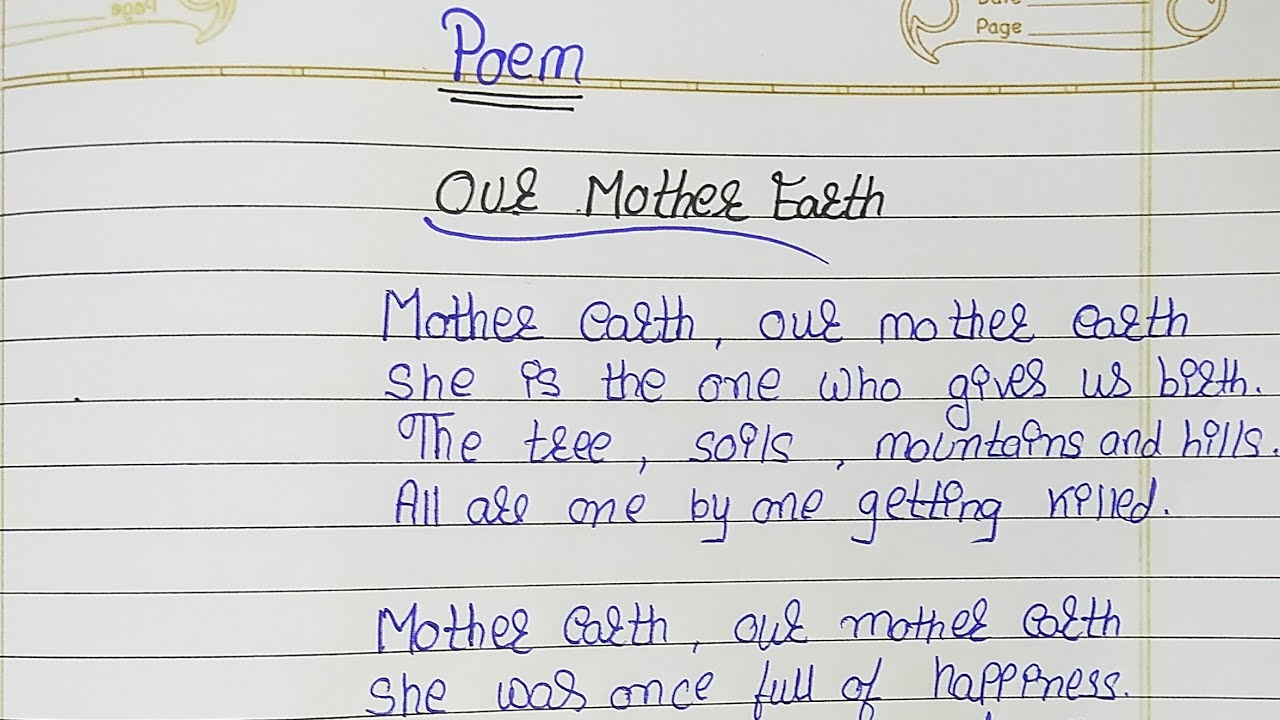 Page
Date
Page
Poem
Our Mother Earth
Mother earth, our mother earth
She is the one who gives us birth.
The tree, soils, mountains and hills.
All are one by one getting killed.
Mother earth, our mother earth
She was once full of happiness.